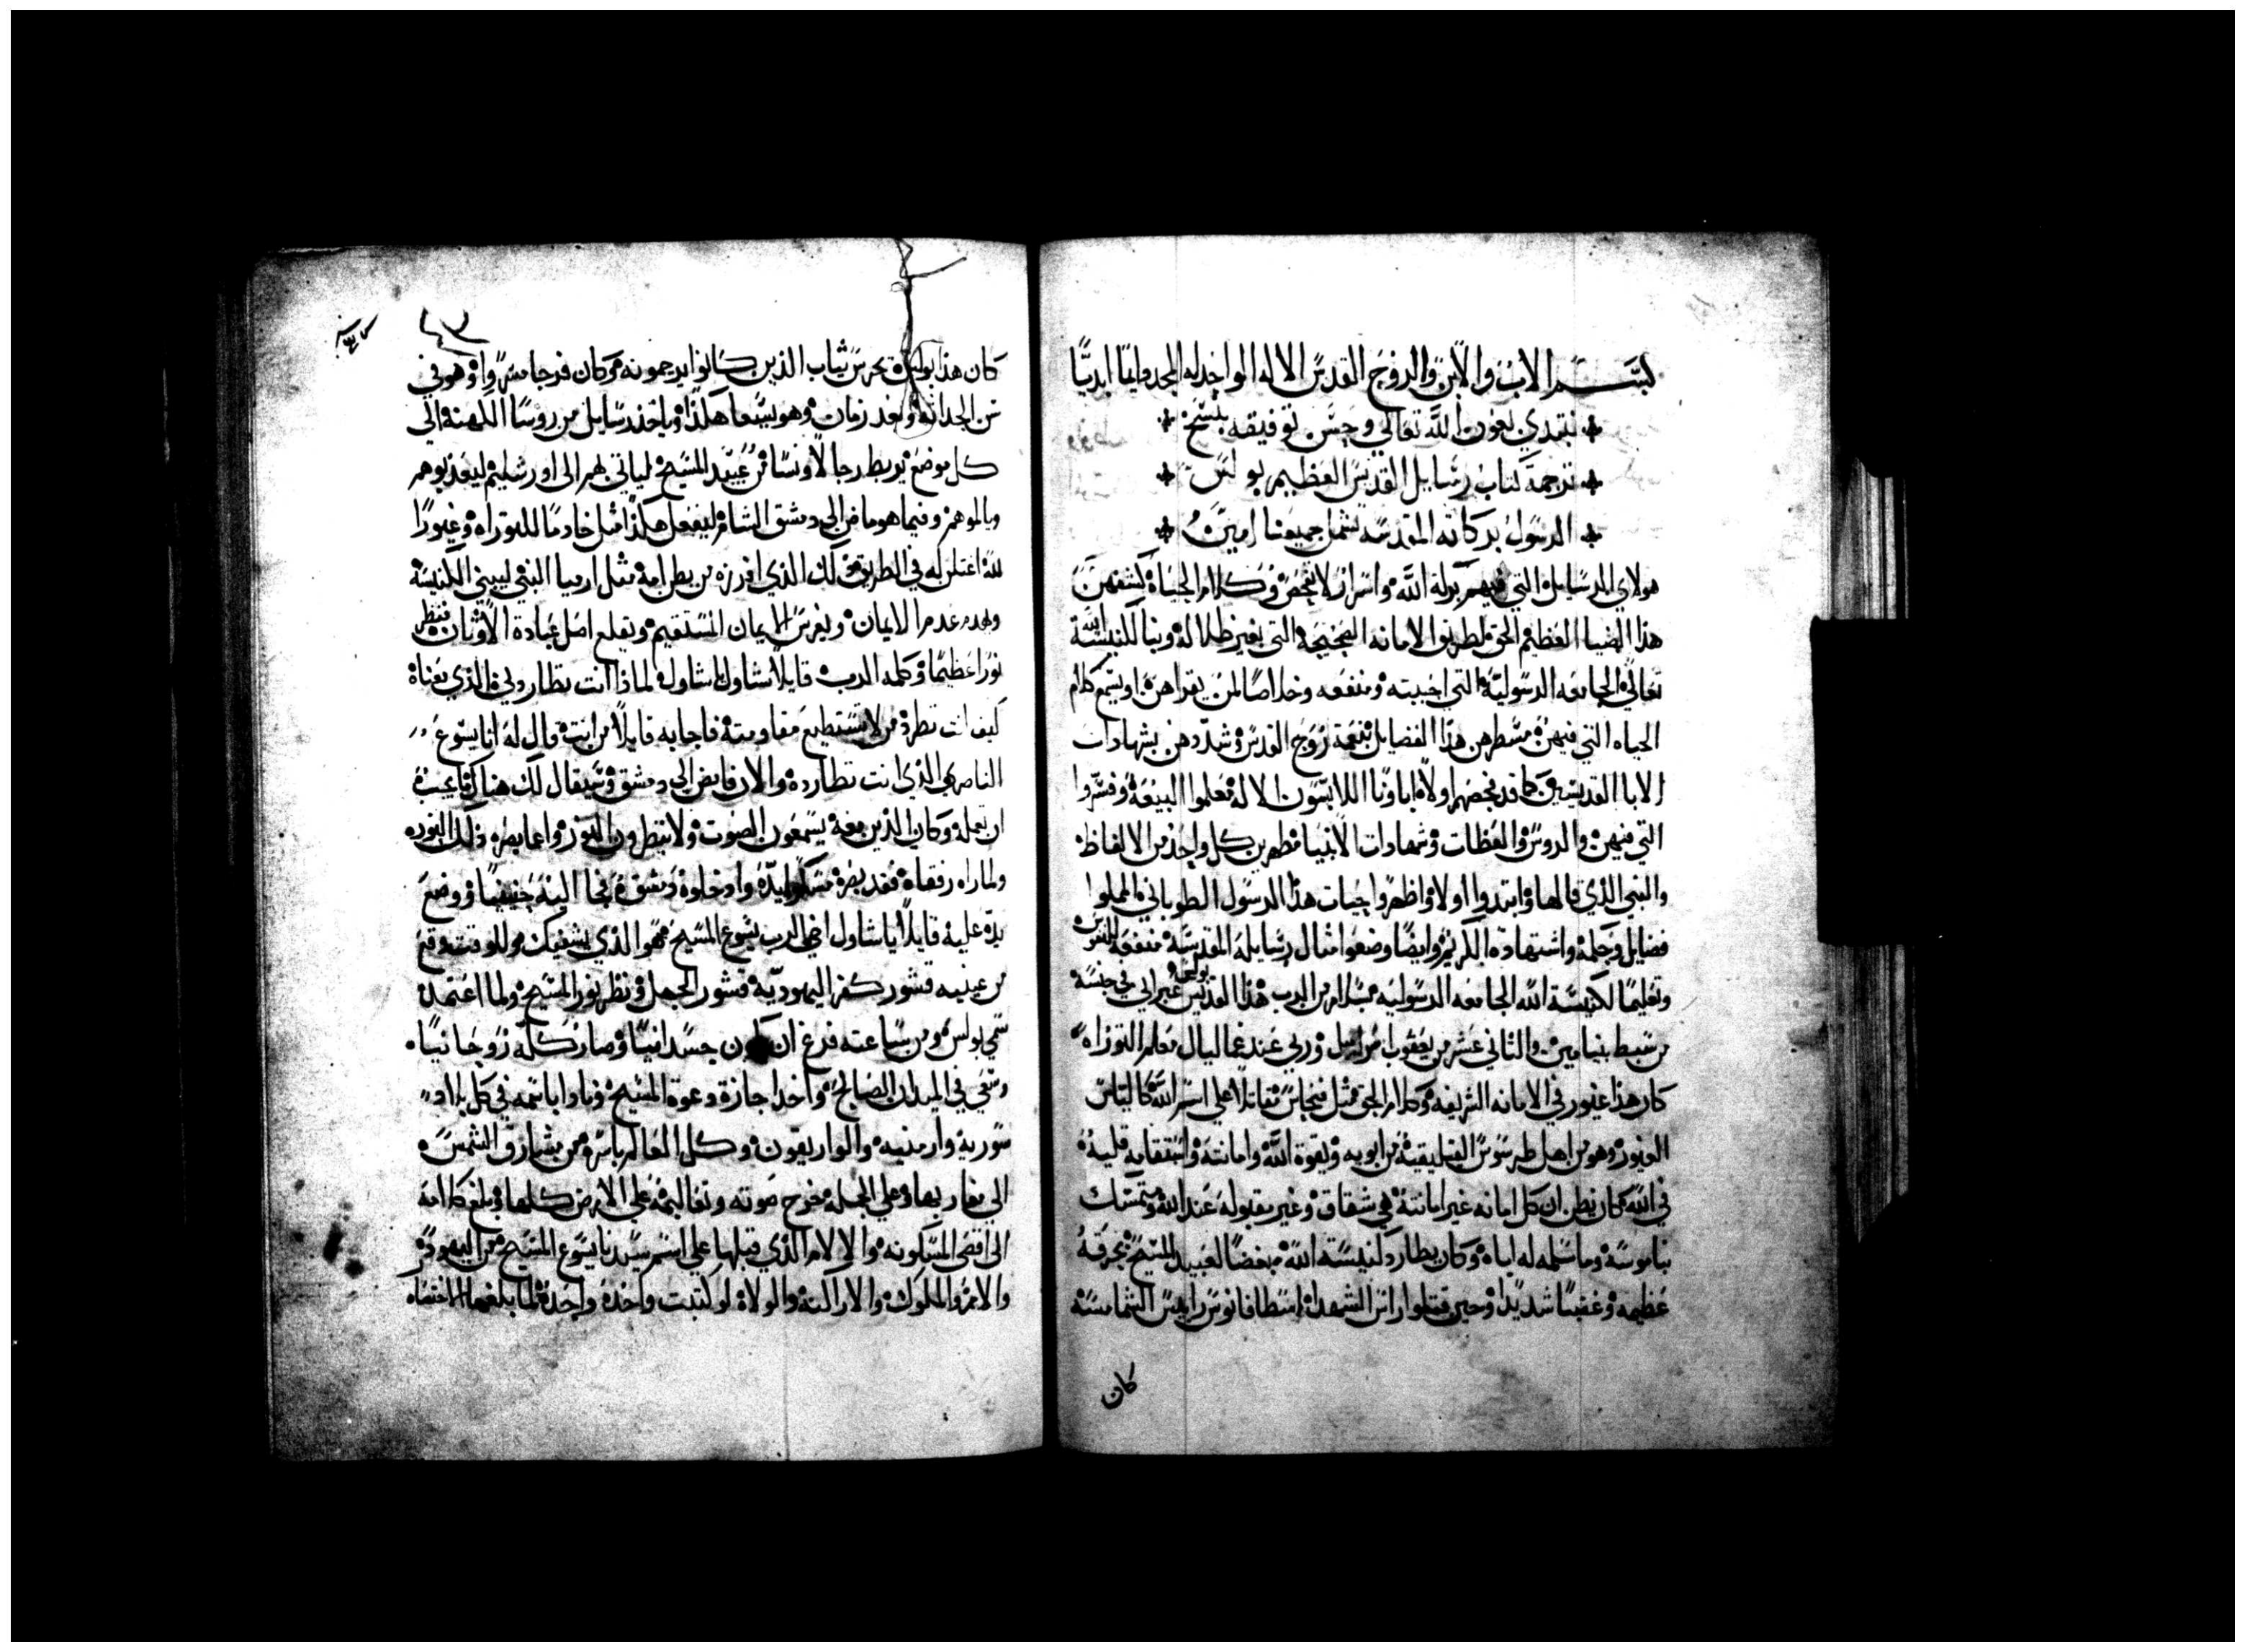 بسم الاب والابن والروح القدس الاله الواحد له المجد دايمًا ابديًا
نبتدي بعون الله تعالي وحسن توفيقه بنسخ
ترجمة كتاب رسايل القديس العظيم بولس
الرسول بركاته المقدسه تشمل جميعنا امين
هولاي الرسايل التي فيهم بركة الله واسرار لا تفحص وكلام الحياه كشفهن
هذا الضيا العظيم الحق لطريق الامانه الصحيحه التي بغير ظلاله وبنا لكنيسة الله
تعالي الجامعه الرسوليه التي احببته ومنفعه وخلاصًا لمن يقراهن او يسمع كلام
الحياه التي فيهن مسطرهن هذا الفضايل بنعمة روح القدس وشددهن بشهادات
الابا القديسين كما قد فحصهم اولًا اباونا اللابسون الاله معلموا البيعه وفسروا
التي فيهن والدروس والعظات وشهادات الانبيا مظهرين كل واحد من الالفاظ
والنبي الذي قالها وابتدوا اولا واظهروا حيات هذا الرسول الطوباني المملوا
فضايل وحكمه واشتهاده الكريم وايضًا وضعوا مثال رسايله المقدسه منفعه للنفس
وتعليمًا لكنيسة الله الجامعه الرسوليه مسلام من الرب هذا القديس بولس عبراني في جنسه
من سبط بنيامين والثاني عشر من يعقوب اسراييل وربي عند غماليال معلم التوراه
كان هذا غيور في الامانه الشريفه وكلام الحق مثل فنحاس مقاتلًا علي اسم الله كالياس
الغيور وهو من اهل طرسوس القيليقيه من ابويه وبقوة الله وامانته واستقامة قلبه
في الله كان يظن ان كل امانه غير امانته هي شقاق وغير مقبوله عند الله ومتمسك
بناموسه وما سلمه له اباه وكان يطارد كنيسة الله مبغضًا لعبيد المسيح بحرقه
عظيمه وغضبًا شديدًا وحين قتلوا راس الشهدا اسطافانوس رايس الشمامسه
كان
كان هذا بولس يحرس ثياب الذين كانوا يرجمونه وكان فرحا مسرورا وهو في
سن الحداثه وبعد زمان وهو يسعا هكذا وياخذ رسايل من روسا الكهنه الي
كل موضع يربط رجالًا ونسا من عبيد المسيح لياتي بهم الي اورشليم ليعذبوهم
ويالموهم وفيما هو ماض الي دمشق الشام ليفعل هكذا مثل خادمًا للتوراه وغيورًا
لله اعتلن له في الطريق ذلك الذي افرزه من بطن امه مثل ارميا النبي ليبني الكنيسه
ويهدم عدم الايمان ويغرس الايمان المستقيم ويقلع اصل عبادة الاوثان فنظر
نورًا عظيمًا وكلمه الرب قايلًا شاول شاول لماذا انت تطاردني الذي بعناه
كيف انت تطرد من لا تستطيع مقاومته فاجابه قايلًا من انت قال له انا يسوع
الناصري الذي انت تطارده والان فامض الي دمشق وسيقال لك هناك ما يجب
ان تعمله وكان الذين معه يسمعون الصوت ولا ينظرون النور واعما بصره ذلك النور
ولما راه رفقاه فقد بصره مسكوا يده وادخلوه دمشق فجا اليه حنينيا ووضع
يده عليه قايلًا يا شاول اخي الرب يسوع المسيح هو الذي يشفيك وللوقت وقع
من عينيه قشور كفر اليهوديه قشور الجهل ونظر نور المسيح ولما اعتمد
سمي بولس ومن ساعته فرغ ان يكون جسدانيًا وصار كله روحانيًا
وسعي في الميدان الصالح واخذ اجازة دعوة المسيح ونادا باسمه في كل بلاد
سورية وارمنيه والواريقون وكل العالم باسره من مشارق الشمس
الي مغاربها وعلي الجمله خرج صوته وتعاليمه علي الارض كلها وبلغ كلامه
الي اقصي المسكونه والالام الذي قبلها علي اسم سيدنا يسوع المسيح من اليهود
والامم والملوك والاراكنه والولاة لو كتبت واحده واحده لما بلغها الاحصاه